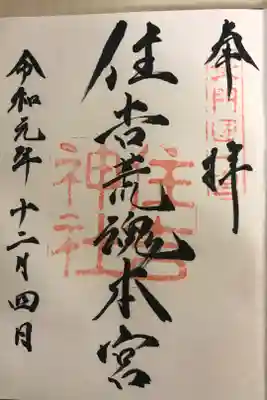 奉拝
住吉荒魂本宮
住吉
神社
令和元年十二月四日